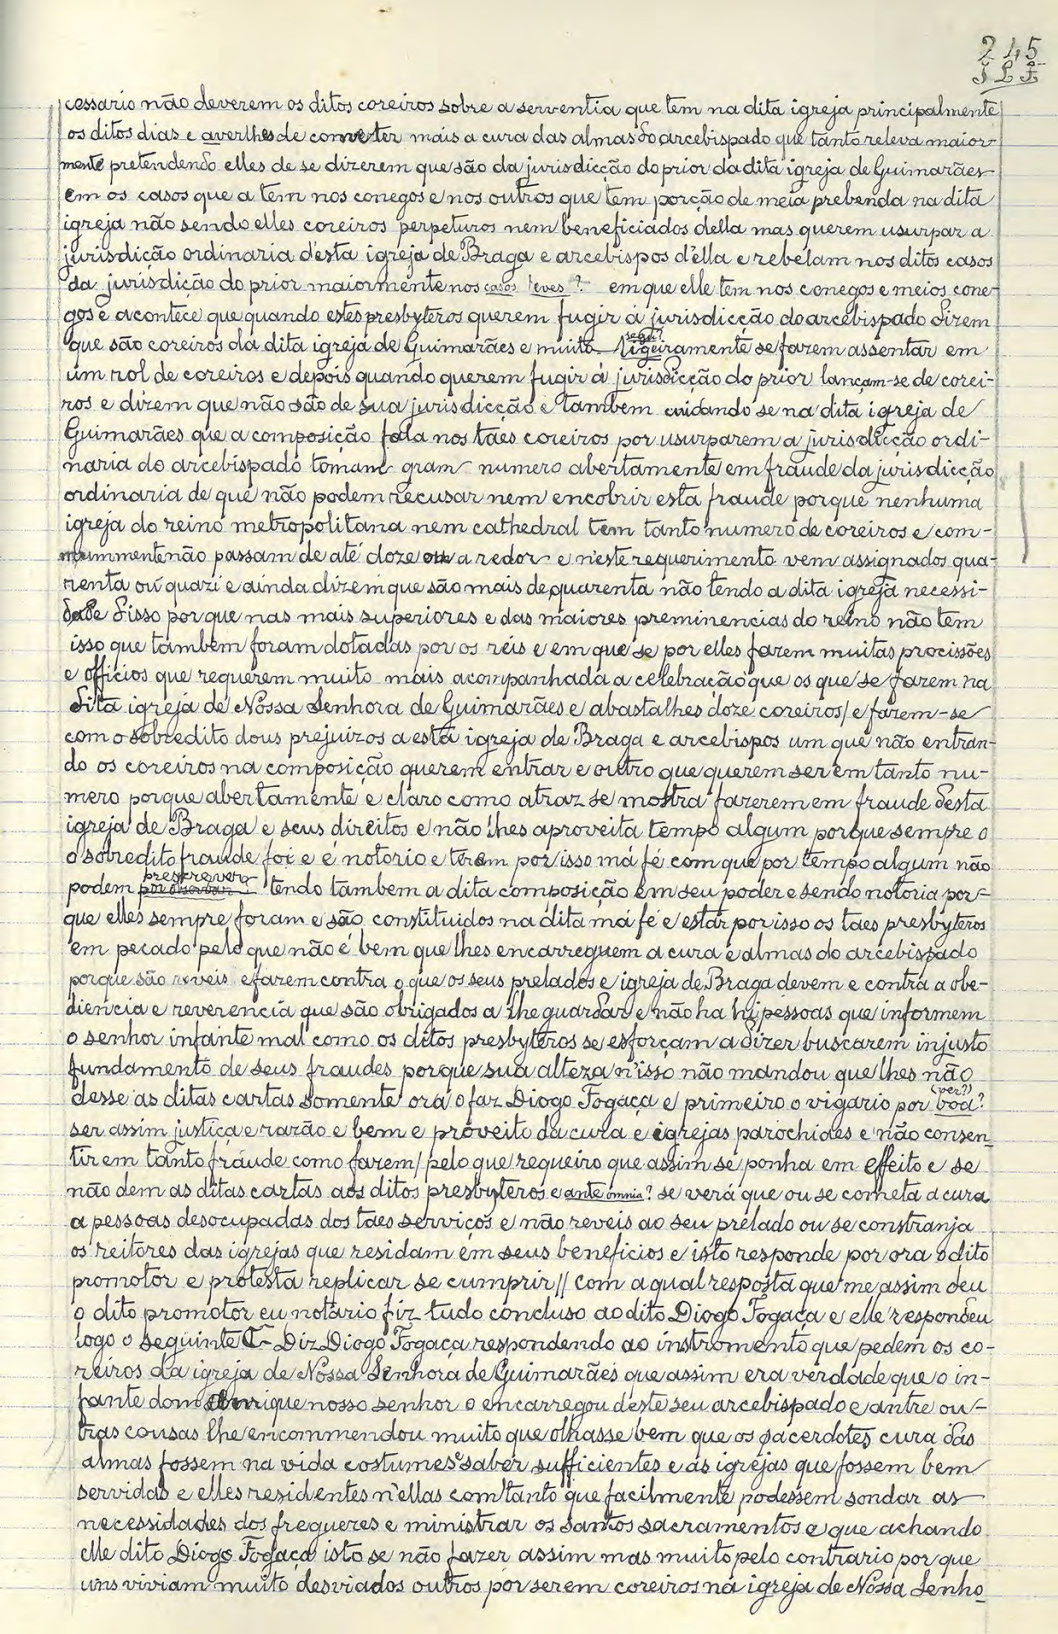 245
cessario não deverem os ditos coreiros sobre a serventia que tem na dita igreja principalmente
os ditos dias e averlhes de cometer mais a cura das almas do arcebispado que tanto releva maior-
mente pretendendo elles de se dizerem que são da jurisdicção do prior da dita igreja de Guimarães
em os casos que a tem nos conegos e nos outros que tem porção de meia prebenda na dita
igreja não sendo elles coreiros perpeturos nem beneficiados della mas querem usurpar a
jurisdição ordinaria d'esta igreja de Braga e arcebispos d'ella e rebelam nos ditos casos
da jurisdição do prior maiormente nos casos em que elle tem nos conegos e meios cone-
gos e acontece que quando estes presbyteros querem fugir á jurisdicção do arcebispado dizem
que são coreiros da dita igreja de Guimarães e muito ligeiramente se fazem assentar em
um rol de coreiros e depois quando querem fugir á jurisdicção do prior lançam-se de corei-
ros e dizem que não são de sua jurisdicção e tambem cuidando se na dita igreja de
Guimarães que a composição fala nos táes coreiros por usurparem a jurisdicção ordi-
naria do arcebispado tomam gram numero abertamente em fraude da jurisdicção
ordinaria de que não podem recusar nem encobrir esta fraude porque nenhuma
igreja do reino metropolitana nem cathedral tem tanto numero de coreiros e com-
mummente não passam de até doze ou a redor e n'este requerimento vem assignados qua-
renta ou quazi e ainda dizem que são mais de quarenta não tendo a dita igreja necessi-
dade disso por que nas mais superiores e das maiores preminencias do reino não tem
isso que tambem foram dotadas por os réis e em que se por elles fazem muitas procissões
e officios que requerem muito mais acompanhada a celebração que os que se fazem na
dita igreja de Nossa Senhora de Guimarães e abastalhes doze coreiros / e fazem-se
com o sobredito dous prejuizos a esta igreja de Braga e arcebispos um que não entran-
do os coreiros na composição querem entrar e outro que querem ser em tanto nu-
mero porque abertamente e claro como atraz se mostra fazerem em fraude desta
igreja de Braga e seus direitos e não lhes aproveita tempo algum porque sempre o
o sobredito fraude foi e é notorio e teram por isso má fé com que por tempo algum não
podem prescrever tendo tambem a dita composição em seu poder e sendo notoria por-
que elles sempre foram e são constituidos na dita má fé e estár por isso os táes presbyteros
em pecado pelo que não é bem que lhes encarreguem a cura é almas do arcebispado
porque são reveis e fazem contra o que os seus prelados e igreja de Braga devem e contra a obe-
diencia e reverencia que são obrigados a lhe guardar e não ha hi pessoas que informem
o senhor infante mal como os ditos presbyteros se esforçam a dizer buscarem injusto
fundamento de seus fraudes porque sua alteza n'isso não mandou que lhes não
desse as ditas cartas somente ora o faz Diogo Fogaça e primeiro o vigario por (ver?) boa?
ser assim justiça e razão e bem e proveito da cura e igrejas parochiaes e não consen-
tir em tanto fraude como fazem / pelo que requeiro que assim se ponha em effeito e se
não dem as ditas cartas aos ditos presbyteros e ante omnia? se verá que ou se cometa a cura
a pessoas desocupadas dos táes serviços e não reveis ao seu prelado ou se constranja
os reitores das igrejas que residam em seus beneficios e isto responde por ora o dito
promotor e protesta replicar se cumprir // com a qual resposta que me assim deu
o dito promotor eu notario fiz tudo concluso ao dito Diogo Fogaça e elle respondeu
logo o seguinte Diz Diogo Fogaça respondendo ao instromento que pedem os co-
reiros da igreja de Nossa Senhora de Guimarães que assim era verdade que o in-
fante dom Anrique nosso senhor o encarregou d'este seu arcebispado e antre ou-
tras cousas lhe encommendou muito que olhasse bem que os sacerdotes cura das
almas fossem na vida costumes e saber sufficientes e ás igrejas que fossem bem
servidas e elles residentes n'ellas com tanto que facilmente podessem sondar as
necessidades dos fregueres e ministrar os santos sacramentos e que achando
elle dito Diogo Fogaça isto se não fazer assim mas muito pelo contrario por que
uns viviam muito desviados outros por serem coreiros na igreja de Nossa Senho-